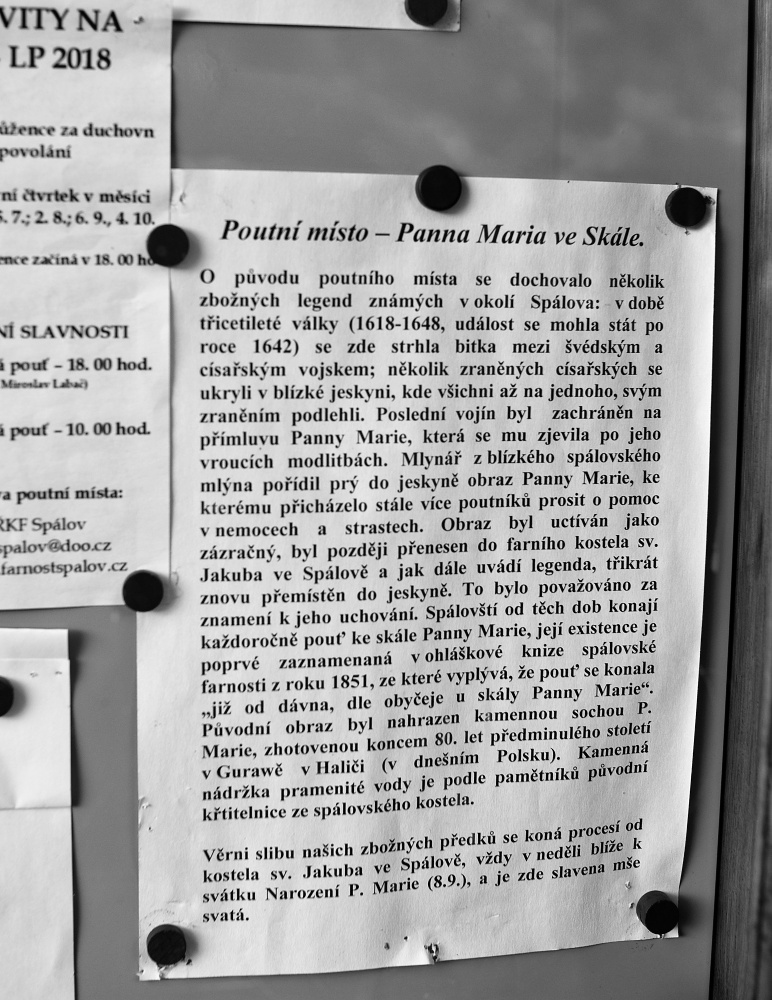 VITY NA
LP 2018
ůžence za duchovn
povolání
ní čtvrtek v měsíci
7.; 2. 8.; 6. 9., 4. 10.
ence začíná v 18. 00 ho
NÍ SLAVNOSTI
á pouť – 18. 00 hod.
Miroslav Labač)
á pouť – 10. 00 hod.
va poutní místa:
ŘKF Spálov
spalov@doo.cz
.farnostspalov.cz
Poutní místo – Panna Maria ve Skále.
O původu poutního místa se dochovalo několik
zbožných legend známých v okolí Spálova: v době
třicetileté války (1618-1648, událost se mohla stát po
roce 1642) se zde strhla bitka mezi švédským a
císařským vojskem; několik zraněných císařských se
ukryli v blízké jeskyni, kde všichni až na jednoho, svým
zraněním podlehli. Poslední vojín byl zachráněn na
přímluvu Panny Marie, která se mu zjevila po jeho
vroucích modlitbách. Mlynář z blízkého spálovského
mlýna pořídil prý do jeskyně obraz Panny Marie, ke
kterému přicházelo stále více poutníků prosit o pomoc
v nemocech a strastech. Obraz byl uctíván jako
zázračný, byl později přenesen do farního kostela sv.
Jakuba ve Spálově a jak dále uvádí legenda, třikrát
znovu přemístěn do jeskyně. To bylo považováno za
znamení k jeho uchování. Spálovští od těch dob konají
každoročně pouť ke skále Panny Marie, její existence je
poprvé zaznamenaná v ohláškové knize spálovské
farnosti z roku 1851, ze které vyplývá, že pouť se konala
„již od dávna, dle obyčeje u skály Panny Marie“.
Původní obraz byl nahrazen kamennou sochou P.
Marie, zhotovenou koncem 80. let předminulého století
v Gurawě v Haliči (v dnešním Polsku). Kamenná
nádržka pramenité vody je podle pamětníků původní
křtitelnice ze spálovského kostela.
Věrni slibu našich zbožných předků se koná procesí od
kostela sv. Jakuba ve Spálově, vždy v neděli blíže k
svátku Narození P. Marie (8.9.), a je zde slavena mše
svatá.